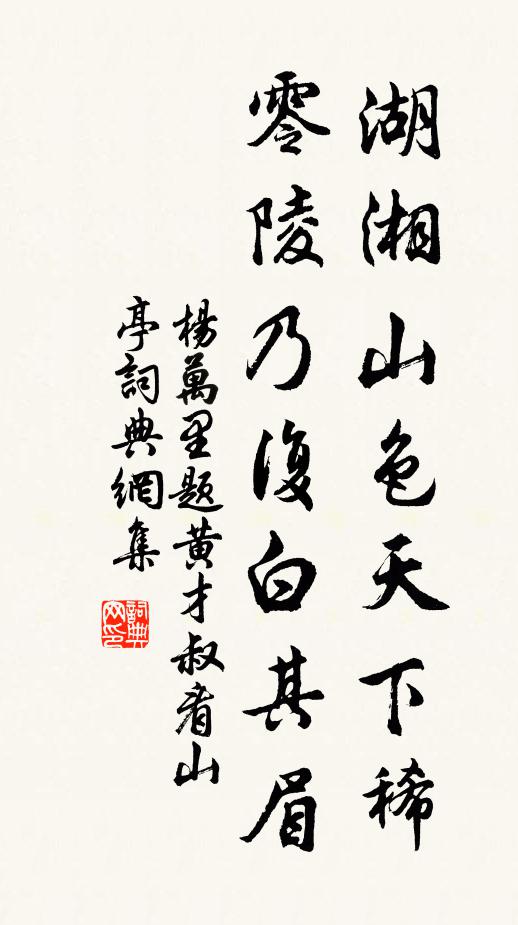 湖湘山色天下稀
零陵乃復白其眉
楊萬里题黄才叔看山
亭詞典網集
詞典
网印